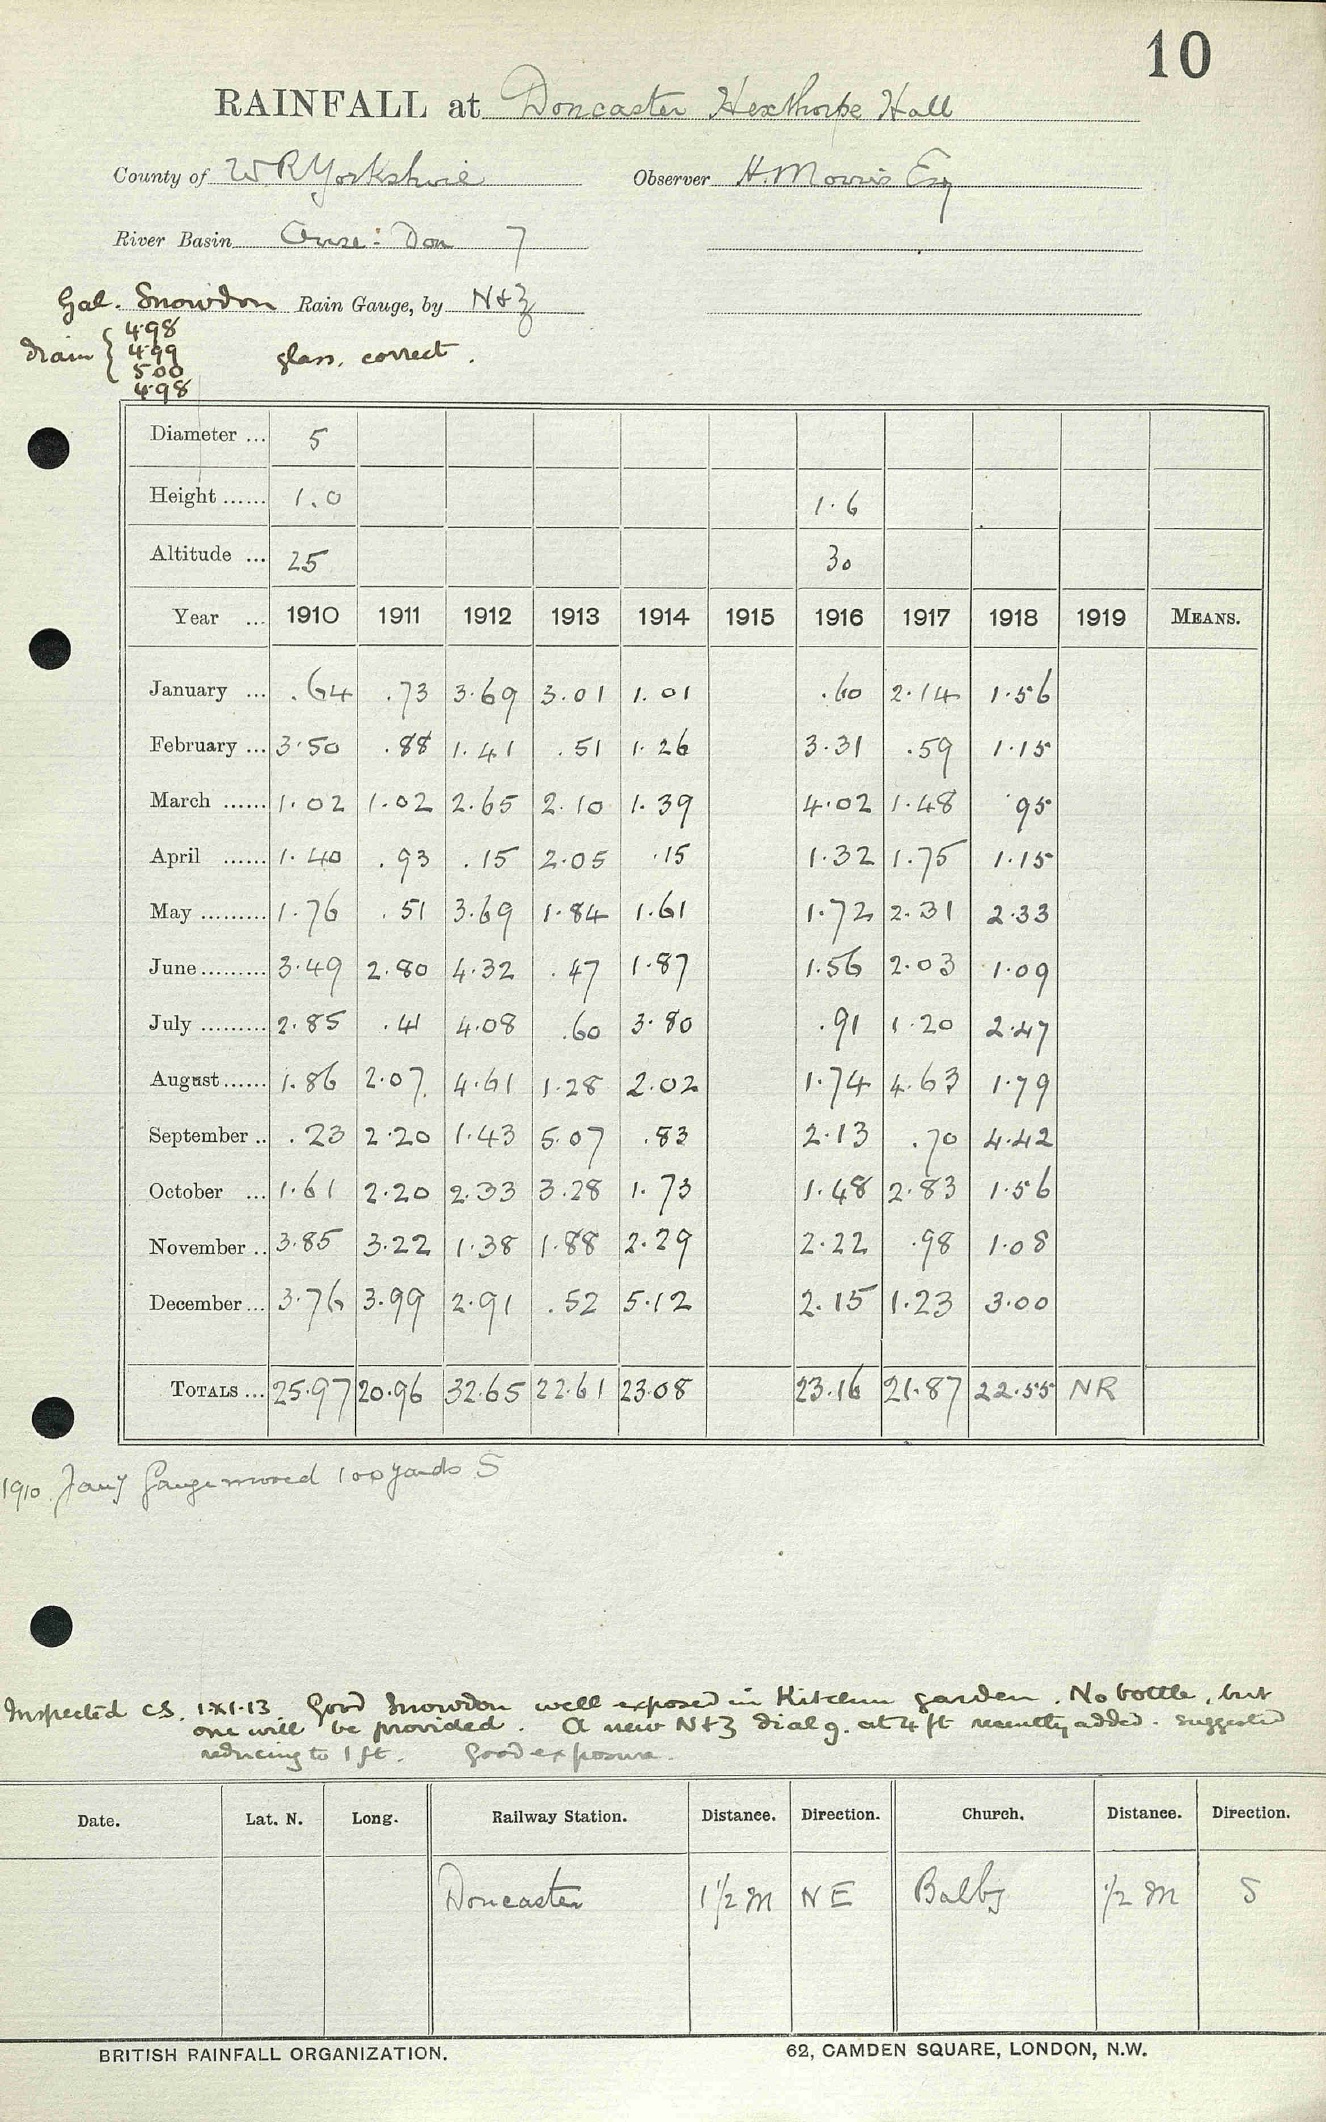 10
RAINFALL at Doncaster Hexthorpe Hall
County of W R Yorkshire Observer H. Morris Esq
River Basin Ouse: Don 7
Gal. Snowdon Rain Gauge, by N+Z
drain { 498
499
500
498
glass, correct.
Diameter ... 5
Height ...... 1.0 1.6
Altitude ... 25 30
Year ... 1910 1911 1912 1913 1914 1915 1916 1917 1918 1919 MEANS.
January ... .64 .73 3.69 3.01 1.01 .60 2.14 1.56
February ... 3.50 .88 1.41 .51 1.26 3.31 .59 1.15
March ...... 1.02 1.02 2.65 2.10 1.39 4.02 1.48 .95
April ...... 1.40 .93 .15 2.05 .15 1.32 1.75 1.15
May ......... 1.76 .51 3.69 1.84 1.61 1.72 2.31 2.33
June ......... 3.49 2.80 4.32 .47 1.87 1.56 2.03 1.09
July ......... 2.85 .41 4.08 .60 3.80 .91 1.20 2.47
August ...... 1.86 2.07 4.61 1.28 2.02 1.74 4.63 1.79
September .. .23 2.20 1.43 5.07 .83 2.13 .70 4.42
October ... 1.61 2.20 2.33 3.28 1.73 1.48 2.83 1.56
November .. 3.85 3.22 1.38 1.88 2.29 2.22 .98 1.08
December ... 3.76 3.99 2.91 .52 5.12 2.15 1.23 3.00
TOTALS ... 25.97 20.96 32.65 22.61 23.08 23.16 21.87 22.55 NR
1910 Jany Gauge moved 100 yards S
Inspected CS. 1x1.13. Good Snowdon well exposed in Kitchen garden. No bottle, but
one will be provided. A new N+Z dial g. at 4 ft recently added. suggested
reducing to 1 ft. Good exposure.
Date. Lat. N. Long. Railway Station. Distance. Direction. Church. Distance. Direction.
Doncaster 1 1/2 m N E Balby 1/2 m S
BRITISH RAINFALL ORGANIZATION. 62, CAMDEN SQUARE, LONDON, N.W.